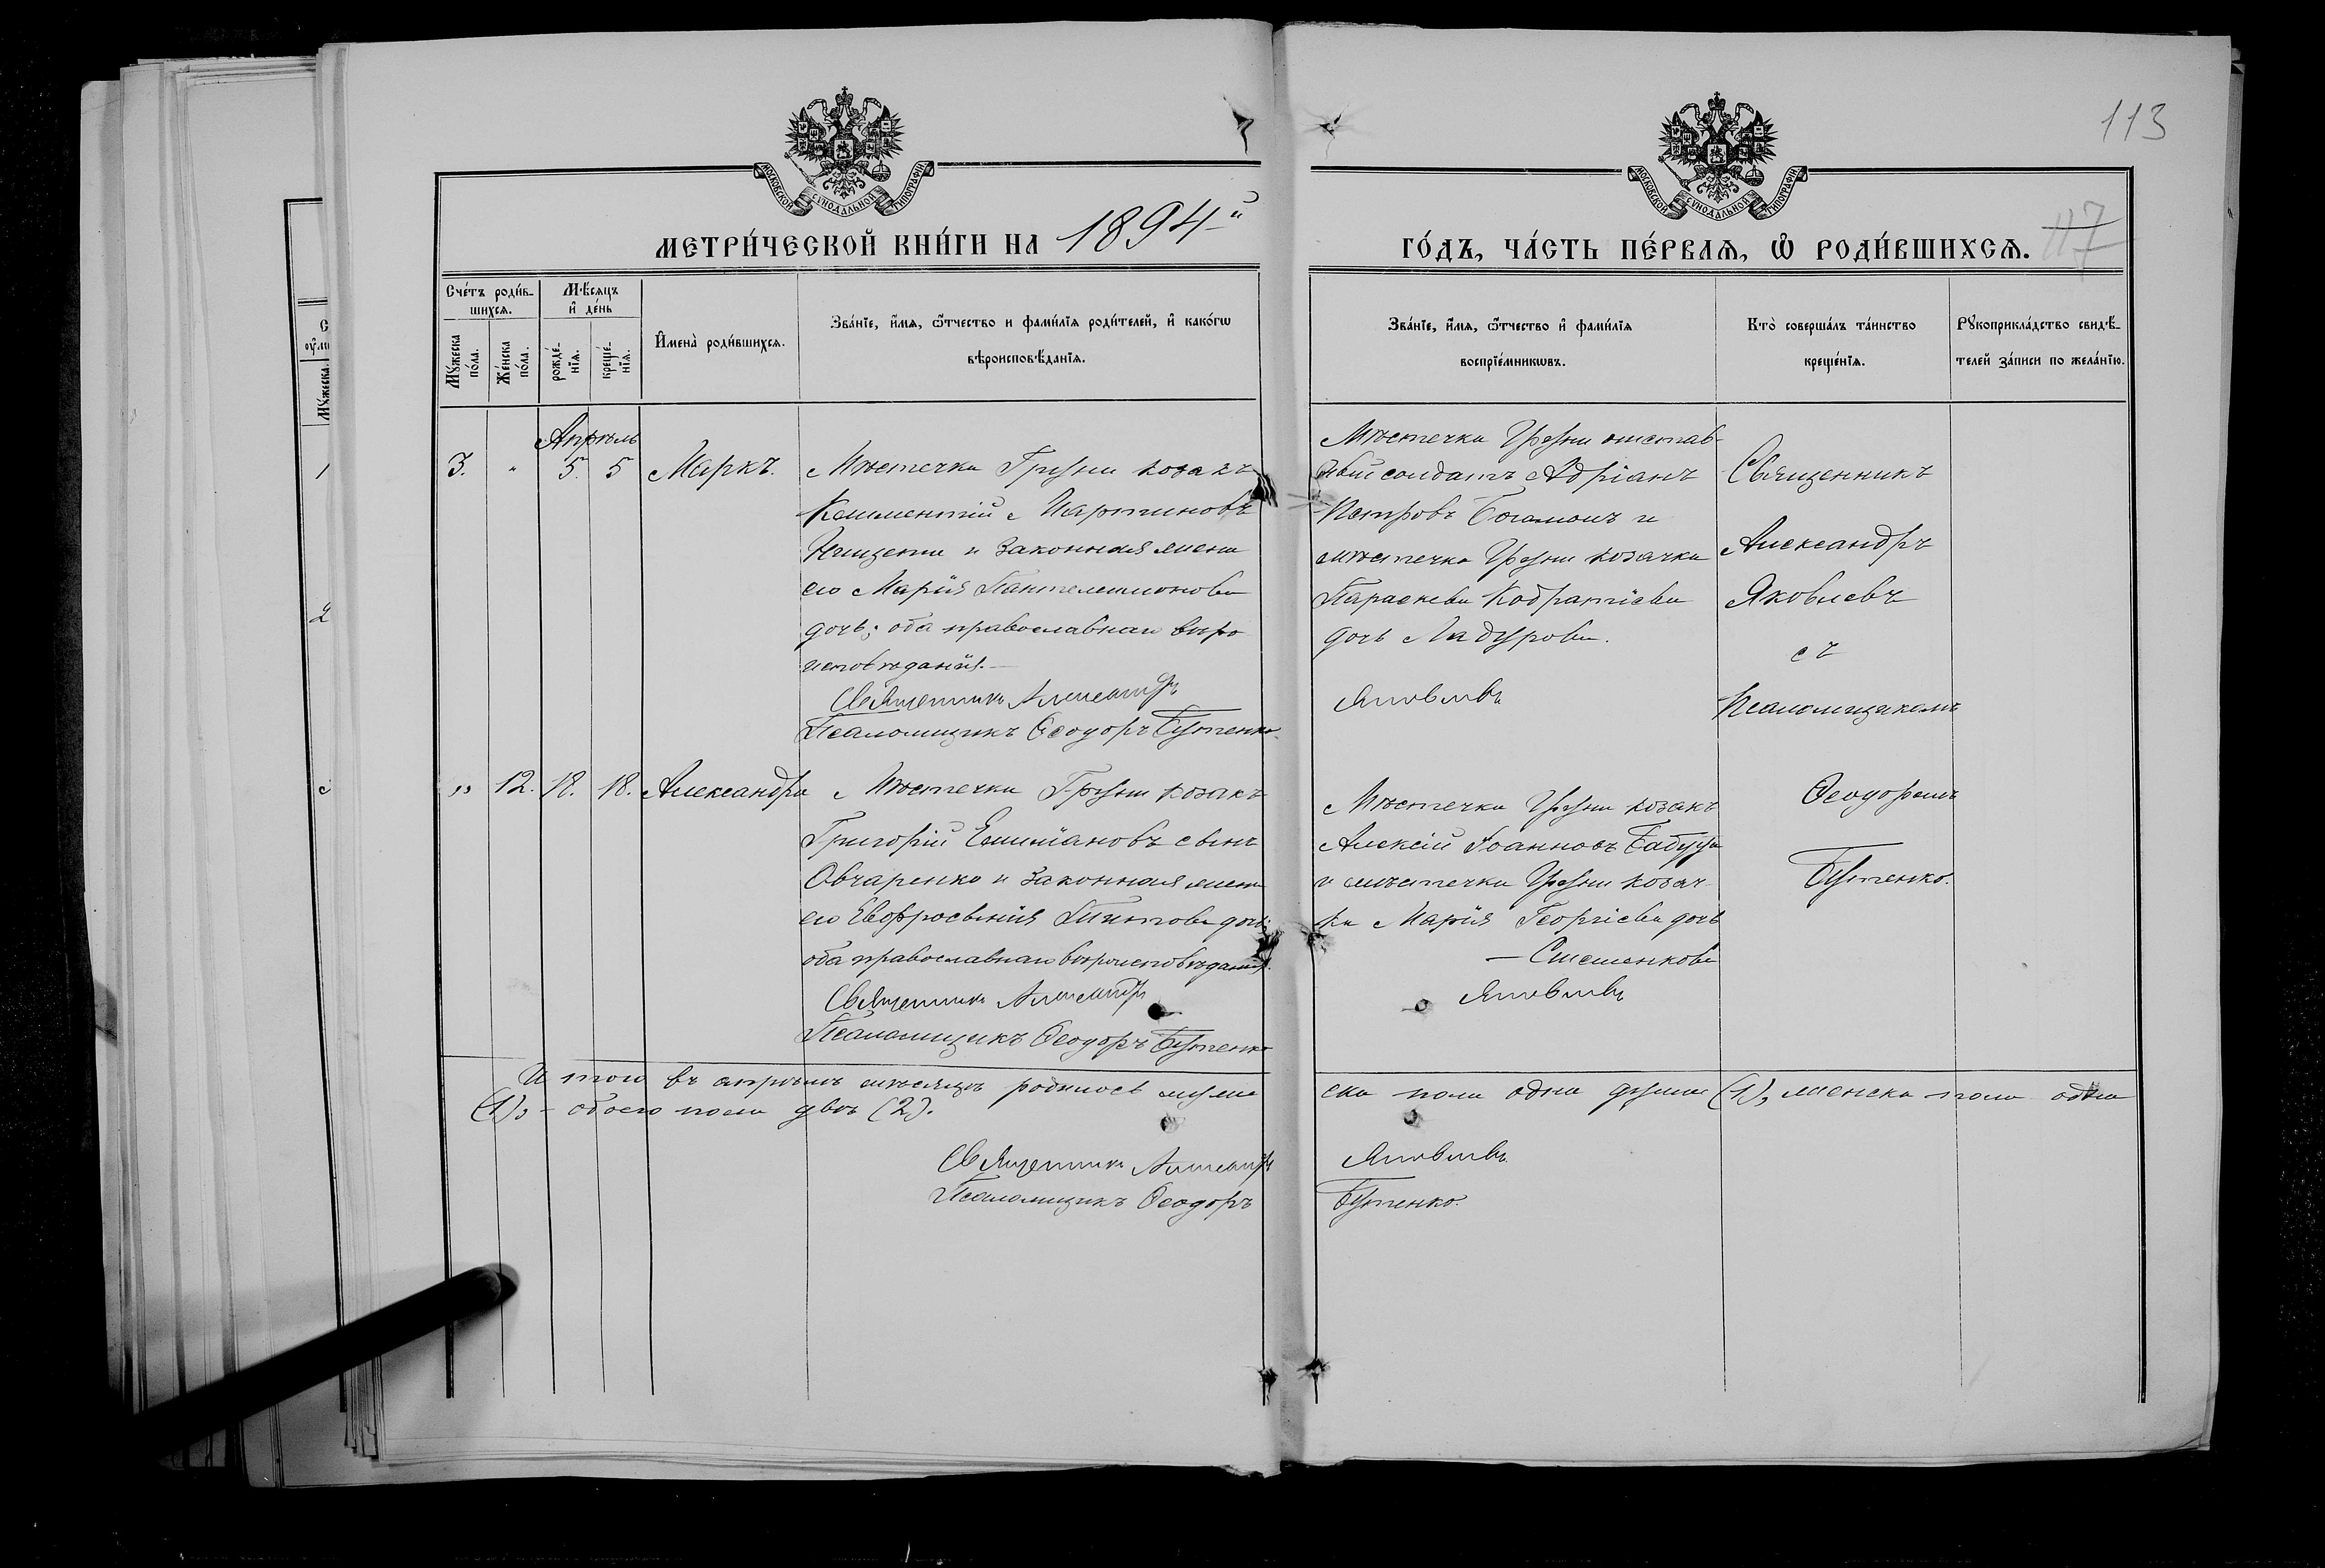 113
МОСКОВСКОЙ СУНОДАЛЬНОЙ ТИПОГРАФІИ
МОСКОВСКОЙ СУНОДАЛЬНОЙ ТИПОГРАФІИ
МЕТРИ́ЧЕСКОЙ КНИ́ГИ НА 1894-й
ГО́ДЪ, ЧА́СТЬ ПЕ́РВАѦ, Ѡ҆ РОДИ́ВШИХСѦ.
117
Сче́тъ роди́в-
шихсѧ.
Мꙋ́жеска по́ла.
Же́нска по́ла.
Мѣ́сѧцъ
и҆ де́нь
рожде́-нїѧ.
креще́-нїѧ.
И҆мена̀ роди́вшихсѧ.
Зва́нїе, и҆́мѧ, ѻ҆́тчество и фами́лїѧ роди́телей, и҆ како́гѡ
вѣроисповѣ́данїѧ.
Зва́нїе, и҆́мѧ, ѻ҆́тчество и҆ фами́лїѧ
воспрїе́мникѡвъ.
Кто̀ соверша́лъ та́инство
креще́нїѧ.
Рꙋкоприкла́дство свидѣ́-
телей за́писи по жела́нїю.
Апрѣль
3. " 5. 5 Маркъ.
Мѣстечка Груни козакъ
Климентій Мартиновъ
и законная жена
его Марія Пантелеимонова
дочь; оба православнаго вѣро
исповѣданія.—
Священникъ Александръ
Псаломщикъ Ѳеодоръ Бутенко.
Мѣстечка Груни отстав-
ный солдатъ Адріанъ
Петровъ и
мѣстечка Груни козачка
Параскева Кодратіева
дочь Ладурова.
Яковлевъ
Священникъ
Александръ
Яковлевъ
съ
Псаломщикомъ
Ѳеодоромъ
Бутенко.
" 12. 18. 18. Александра
Мѣстечка Груни козакъ
Григорій Емиліановъ сынъ
Овчаренко и законная жена
его Евфросинія Титова дочь;
оба православнаго вѣроисповѣданія.
Священникъ Александръ
Псаломщикъ Ѳеодоръ Бутенко
Мѣстечка Груни козакъ
Алексій Іоанновъ
и мѣстечка Груни козач-
ка Марія Георгіева дочь
—
Яковлевъ
Итого въ апрѣлѣ мѣсяцѣ родилось муже
ска пола одна душа (1), женска пола одна
(1), - обоего пола двѣ (2).
Священникъ Александръ
Яковлевъ
Псаломщикъ Ѳеодоръ
Бутенко.